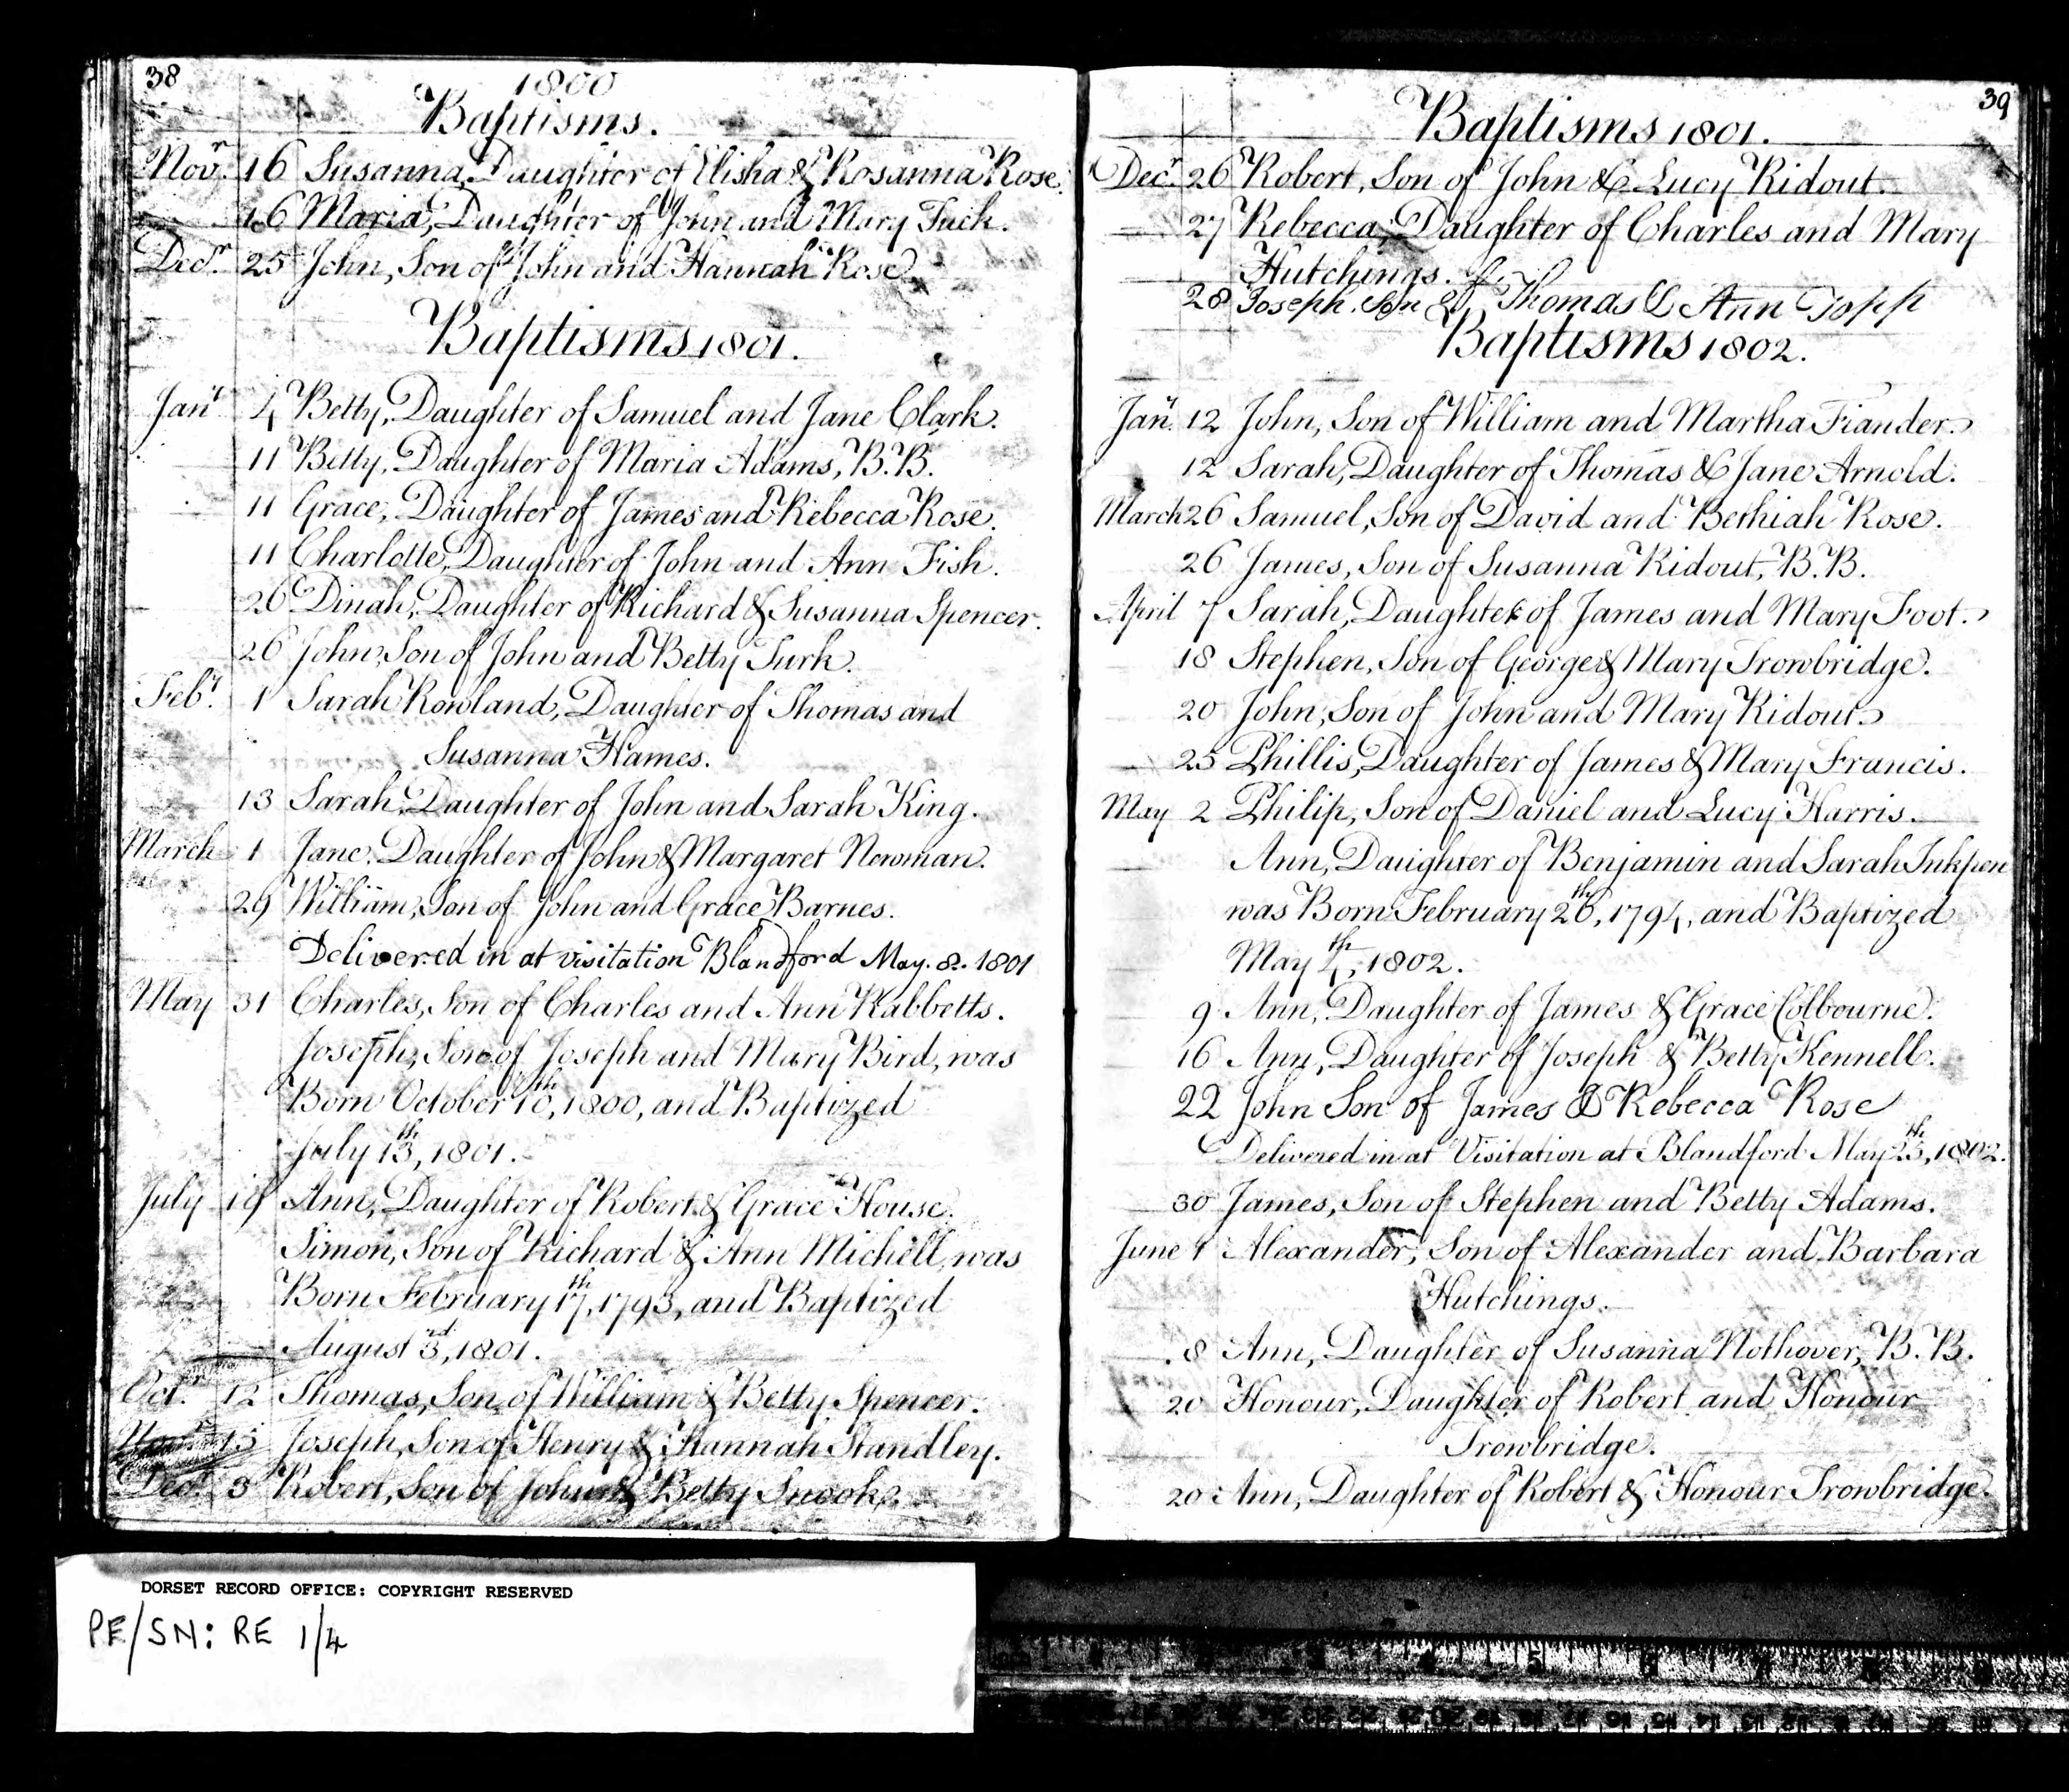 38
1800
Baptisms.
Novr. 16 Susanna, Daughter of Elisha & Rosanna Rose.
16 Maria, Daughter of John and Mary Tuck.
Decr. 25 John, Son of John and Hannah Rose.
Baptisms 1801.
Jany. 4 Betty, Daughter of Samuel and Jane Clark.
11 Betty, Daughter of Maria Adams, B.B.
11 Grace, Daughter of James and Rebecca Rose.
11 Charlotte, Daughter of John and Ann Fish.
26 Dinah, Daughter of Richard & Susanna Spencer.
26 John, Son of John and Betty Turk.
Feby. 1 Sarah Rowland, Daughter of Thomas and
Susanna Hames.
13 Sarah, Daughter of John and Sarah King.
March 1 Jane, Daughter of John & Margaret Newman.
29 William, Son of John and Grace Barnes.
Delivered in at visitation Blandford May. 8. 1801
May 31 Charles, Son of Charles and Ann Rabbetts.
Joseph, Son of Joseph and Mary Bird, was
Born October 10th, 1800, and Baptized
July 13th, 1801.
July 19 Ann, Daughter of Robert & Grace House.
Simon, Son of Richard & Ann Michell, was
Born February 17th, 1793, and Baptized
August 3rd, 1801.
Octr. 12 Thomas, Son of William & Betty Spencer.
Novr. 15 Joseph, Son of Henry & Hannah Standley.
Decr. 3 Robert, Son of John & Betty Snook.
39
Baptisms 1801.
Decr. 26 Robert, Son of John & Lucy Ridout.
27 Rebecca, Daughter of Charles and Mary
Hutchings.
28 Joseph. Son of Thomas & Ann Topp
Baptisms 1802.
Jany. 12 John, Son of William and Martha Fiander.
12 Sarah, Daughter of Thomas & Jane Arnold.
March 26 Samuel, Son of David and Bethiah Rose.
26 James, Son of Susanna Ridout, B.B.
April 7 Sarah, Daughter of James and Mary Foot.
18 Stephen, Son of George & Mary Trowbridge.
20 John, Son of John and Mary Ridout.
25 Phillis, Daughter of James & Mary Francis.
May 2 Philip, Son of Daniel and Lucy Harris.
Ann, Daughter of Benjamin and Sarah Inkpen
was Born February 26th, 1794, and Baptized
May 4th, 1802.
9 Ann, Daughter of James & Grace Colbourne.
16 Ann, Daughter of Joseph & Betty Kennell.
22 John Son of James & Rebecca Rose
Delivered in at Visitation at Blandford May 25th, 1802.
30 James, Son of Stephen and Betty Adams.
June 1 Alexander, Son of Alexander and Barbara
Hutchings.
8 Ann, Daughter of Susanna Nothover, B.B.
20 Honour, Daughter of Robert and Honour
Trowbridge.
20 Ann, Daughter of Robert & Honour Trowbridge.
DORSET RECORD OFFICE: COPYRIGHT RESERVED
PE/SN: RE 1/4